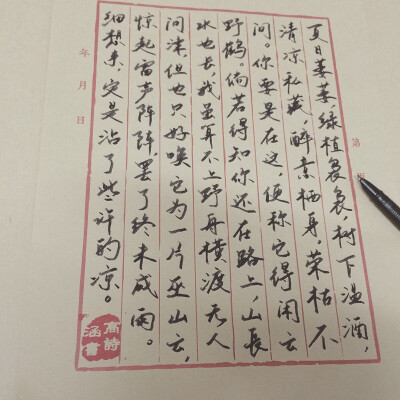 夏日萋萋绿植袅袅树下温酒，
清凉私藏，醉素栖身，荣枯不
问。你要是在这，便称它得闲云
野鹤。倘若得知你还在路上，山長
水也长，我虽算不上野舟横渡无人
问津，但也只好唤它为一片巫山云，
惊起雷声阵阵，罢了终未成雨。
细想来，定是沾了些许的凉。
高詩
涵書
年 月 日
第